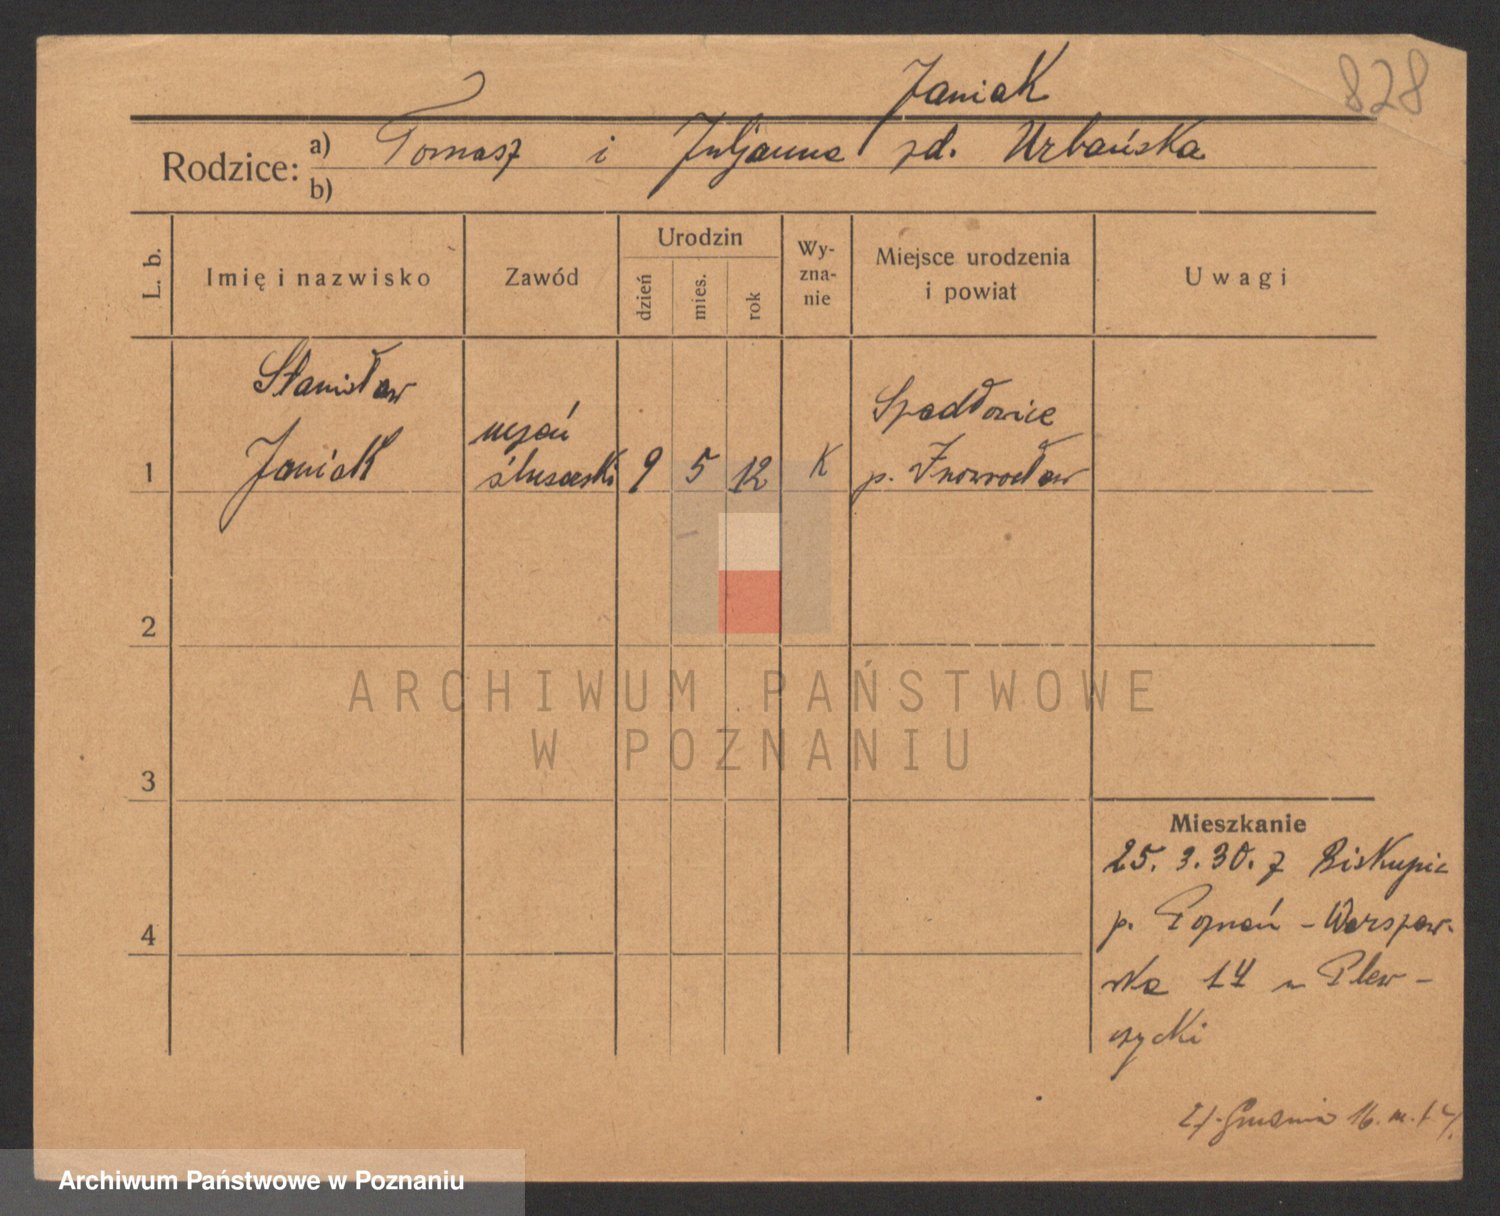 828
Janiak
Rodzice: a) Tomasz i Juljanna zd. Urbańska
b)
L. b.
Imię i nazwisko
Zawód
Urodzin
dzień
mies.
rok
Wy-
zna-
nie
Miejsce urodzenia
i powiat
Uwagi
Stanisław
Janiak
uczeń
ślusarski
1
9
5
12
K
Spadłowice
p. Inowrocław
2
3
4
Mieszkanie
25. 3. 30. z Biskupic
p. Poznań - Warszaw-
ska 14 u Plew-
Gnieźnia 16.
ARCHIWUM PAŃSTWOWE
W POZNANIU
Archiwum Państwowe w Poznaniu